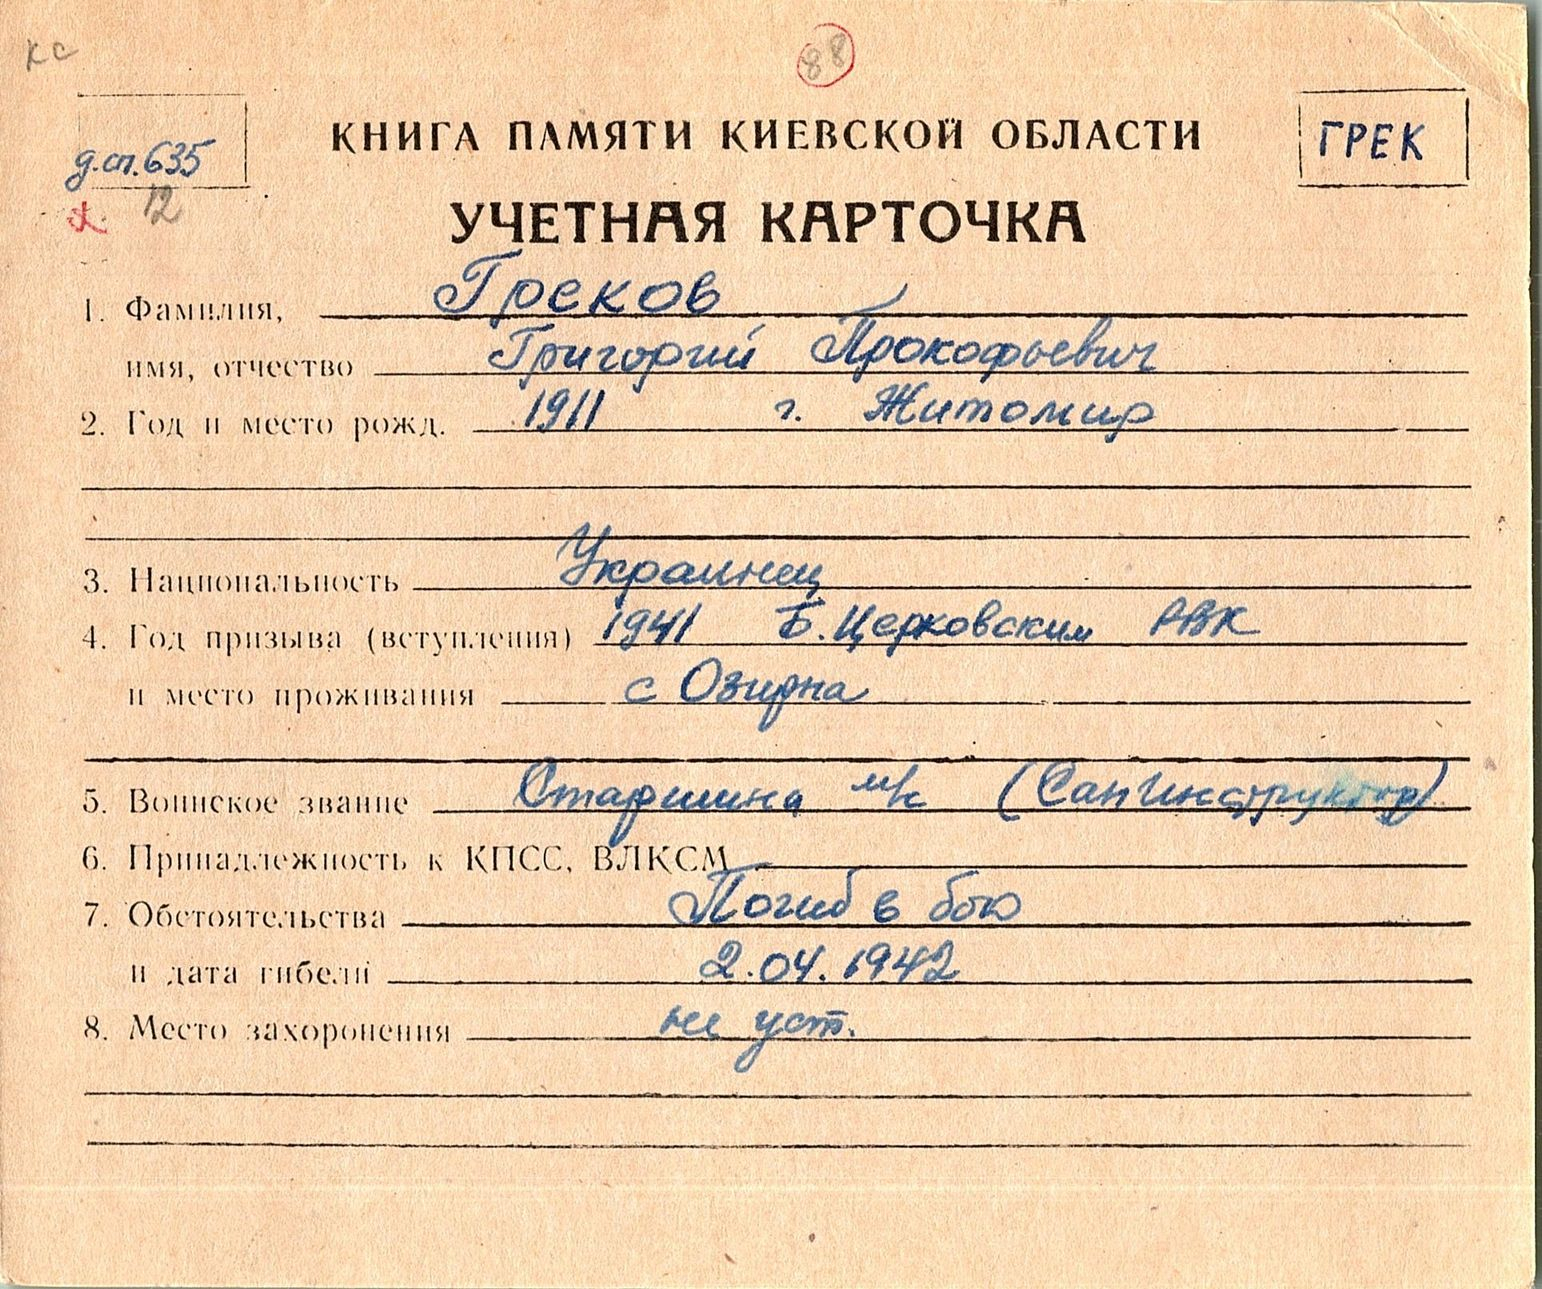 кс
88
д.сп.635
12
КНИГА ПАМЯТИ КИЕВСКОЙ ОБЛАСТИ
ГРЕК
УЧЕТНАЯ КАРТОЧКА
1. Фамилия, Греков
имя, отчество Григорий Прокофьевич
2. Год и место рожд. 1911 г. Житомир
3. Национальность Украинец
4. Год призыва (вступления) 1941 Б. Церковским РВК
и место проживания с Озирна
5. Воинское звание Старшина м/с (Сан инструктор)
6. Принадлежность к КПСС, ВЛКСМ
7. Обстоятельства Погиб в бою
и дата гибели 2.04.1942
8. Место захоронения не уст.